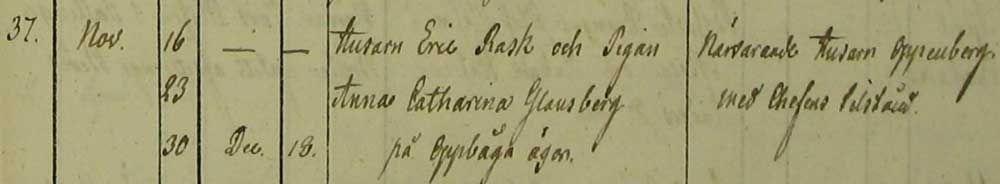 37. Nov. 16 — — Husarn Eric Rask och Pigan Närvarande Husarn Oppenberg
23 Anna Catharina Glansberg med Chefens tilstånd.
30 Dec. 18. på Oppbåga ägor.